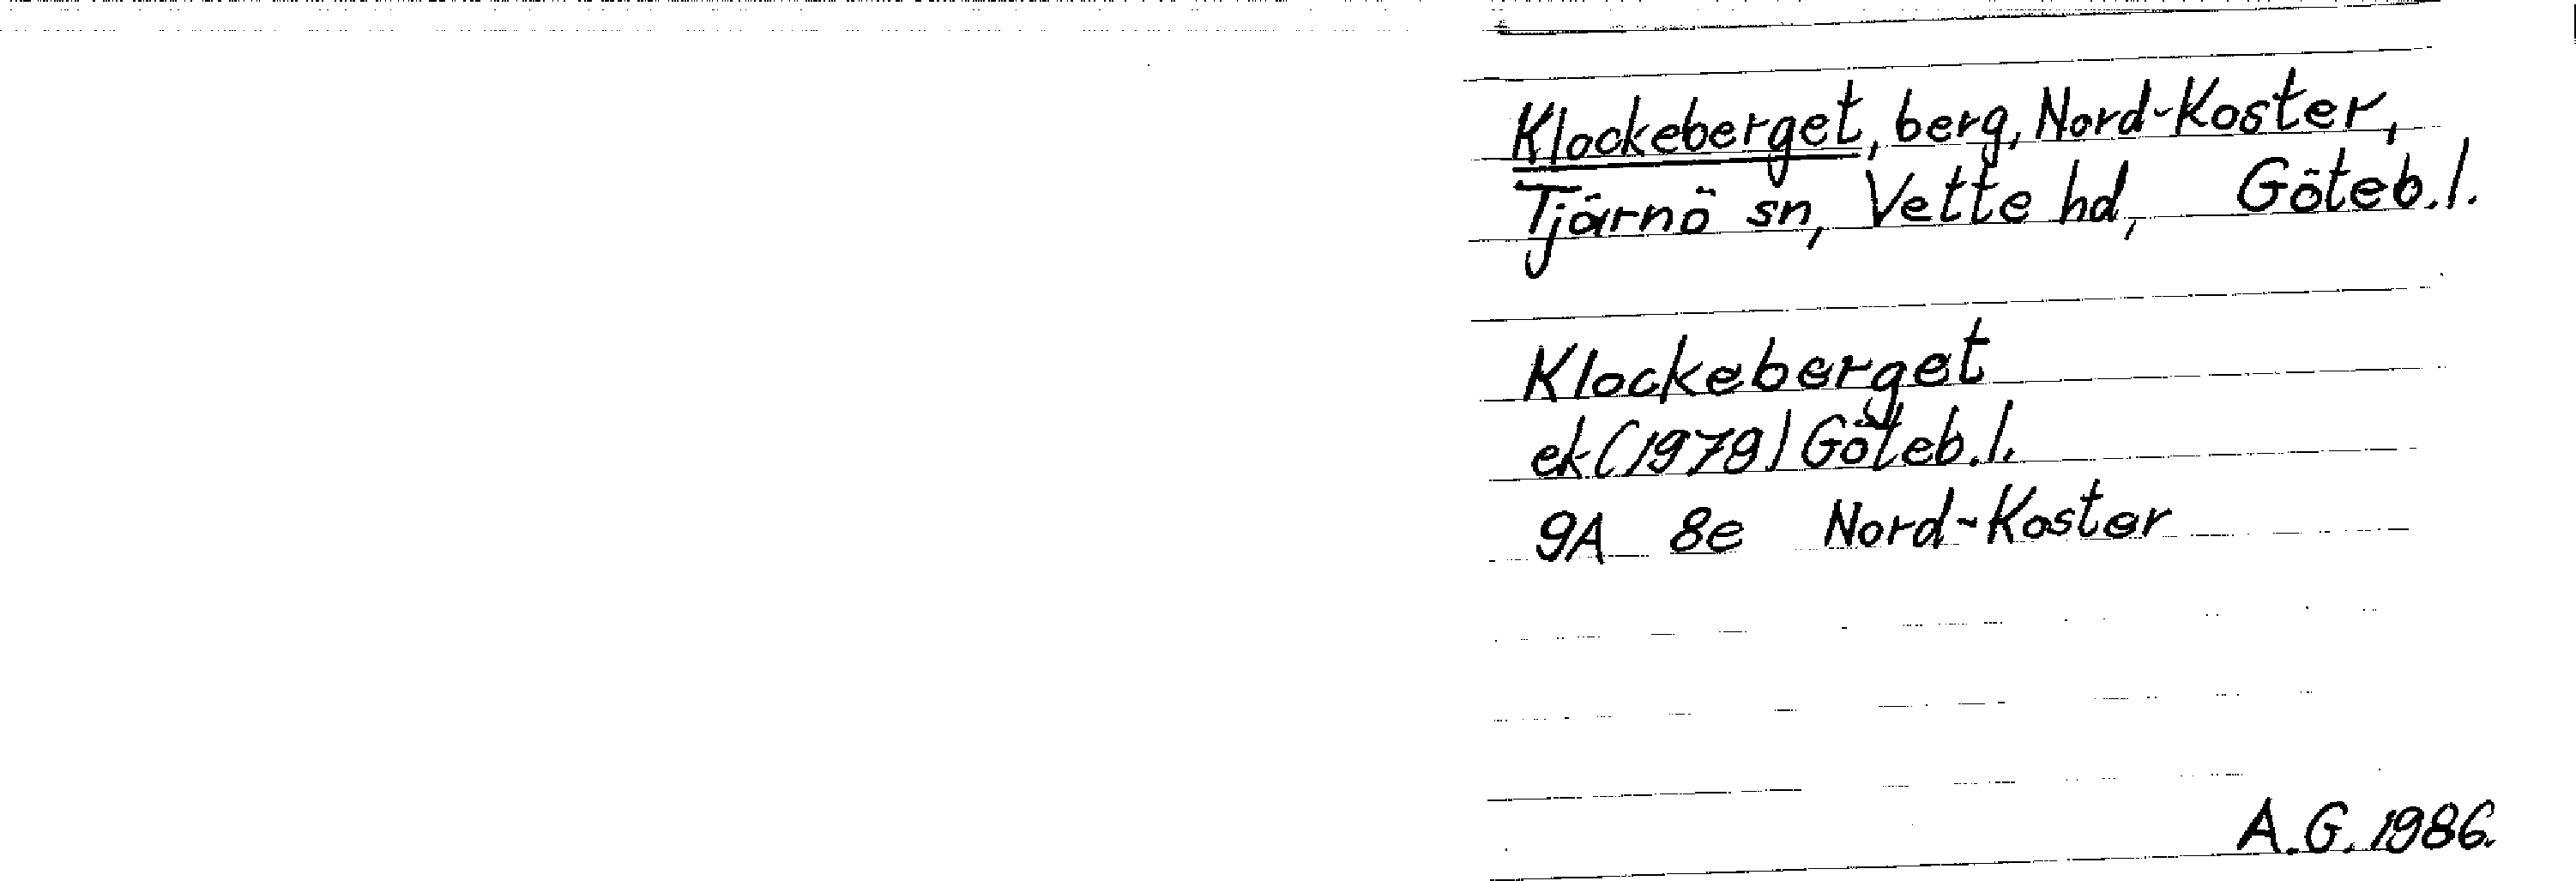 Klockeberget, berg, Nord-Koster,
Tjärnö sn, Vette hd, Göteb.l.
Klockeberget
ek (1979) Göteb.l.
9A 8e Nord-Koster
A.G. 1986.